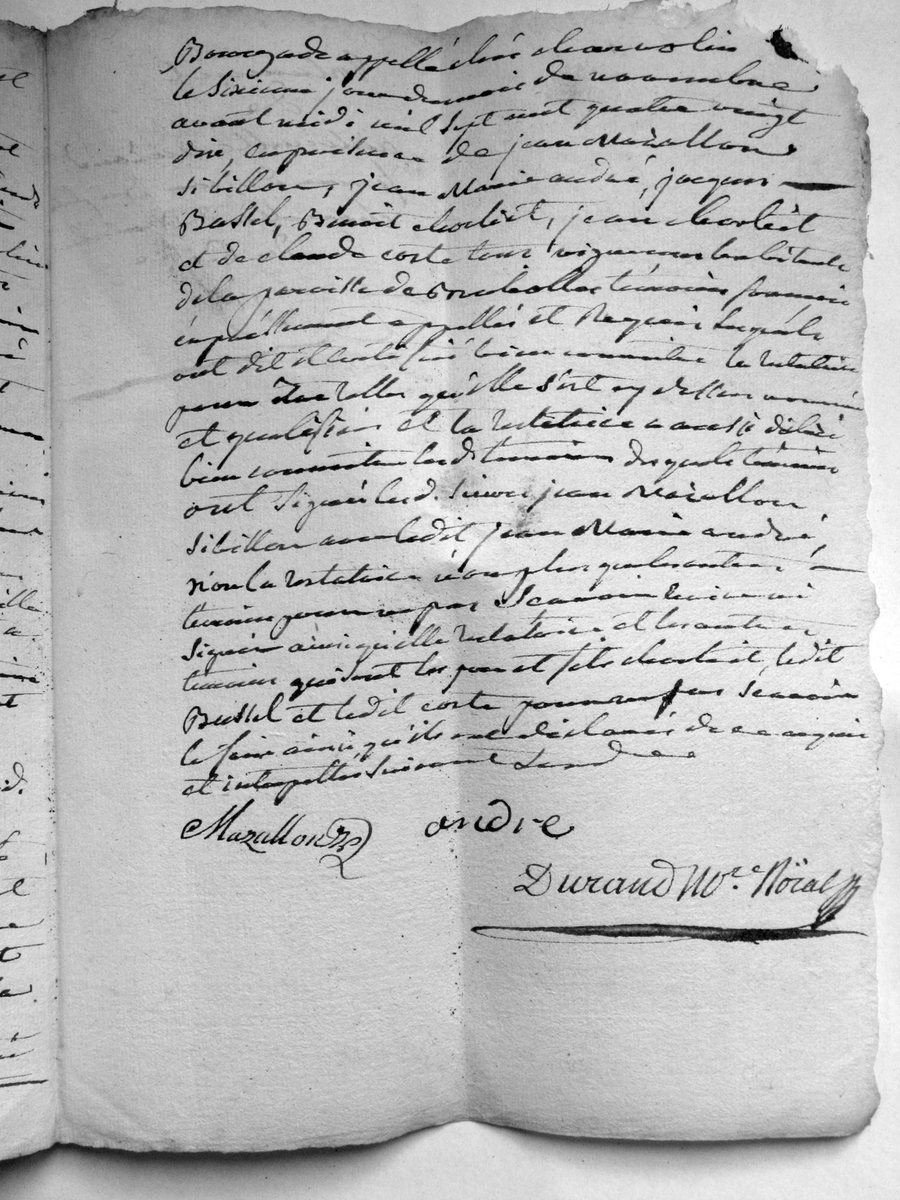 appellé chés charvolin
le Sixieme jour du mois de novembre
avant midi mil sept cent quatre vingt
dix, en presence de jean Mazallon
Sibillon, jean Marie andré, jacques
Bussel, Benoit charlet, jean charlet
et de claude coste tous vignerons habitants
de la paroisse de temoins
appellés et Requis lesquels
ont dit et bien connoitre la testatrice
pour telle qu'elle s'est cy dessus nommé
et qualifiée et la testatrice a aussi dit
bien connoitre lesd temoins desquels temoins
ont signé led. Sieur jean Mazallon
Sibillon avec ledit jean Marie andré,
non la testatrice non plus que les autres
temoins pour ne pas Scavoir ni
signer ainsi qu'elle testatrice et les autres
temoins qui sont les pere et fils charlet, ledit
Bussel et ledit coste pour ne pas Scavoir
le faire ainsi qu'ils ont déclaré de ce enquis
et interpellés suivant
Mazallon andre
Durand No.re Roïal